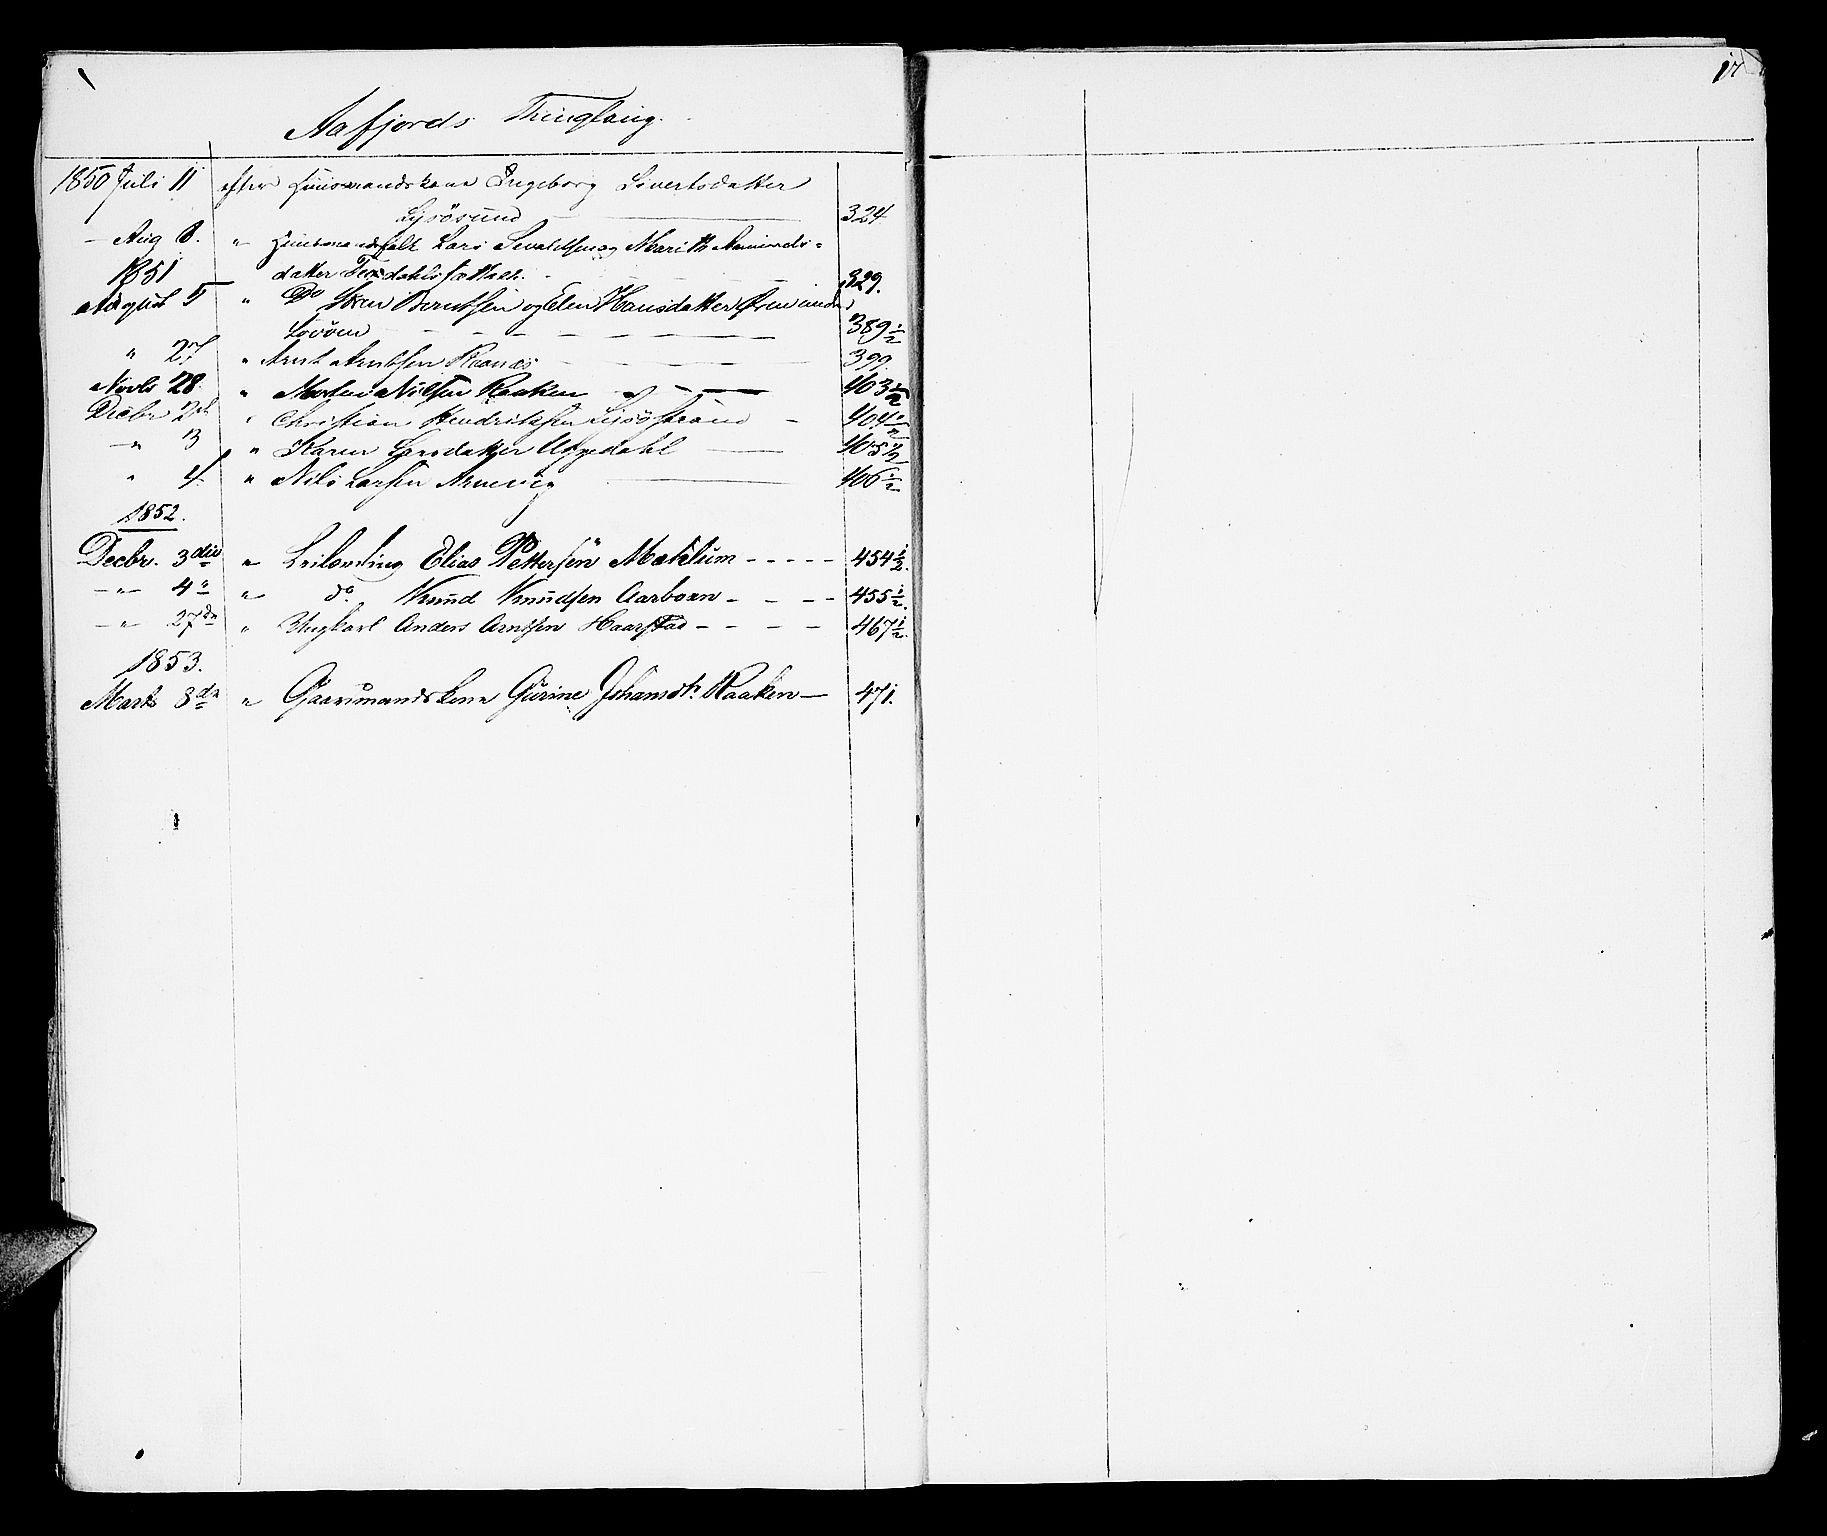 17
Aafjords Thinglaug.
1850 Juli 11 efter Huusmandskone Ingeborg Sivertsdatter
Lysösund 324
– Aug 8. " Huusmandsfolk Lars Sevaldsen og Marith
datter 329.
1851
August 5 " Do Berntsen og Elen Hansdatter
Lövöen 389 1/2
" 27 " Arnt Arntsen Raanes 399
Novb 28. " Morten Nilsen Raaken 403 1/2
Decbr 2d " Christian Hendriksen Lysöstrand 404 1/2
–"– 3 " Karen Larsdatter Opdahl 405 1/2
" 4. " Nils Larsen Arnevig 406 1/2
1852.
Decbr. 3die " Leilænding Elias Pettersen 454 1/2.
–"– 4de " do. Knud Knudsen 455 1/2.
–"– 27de " Ungkarl Anders Arntsen Haarstad 467 1/2.
1853.
Marts 3de " Gaardmandskone Gurine Johansdr. Raaken 471.